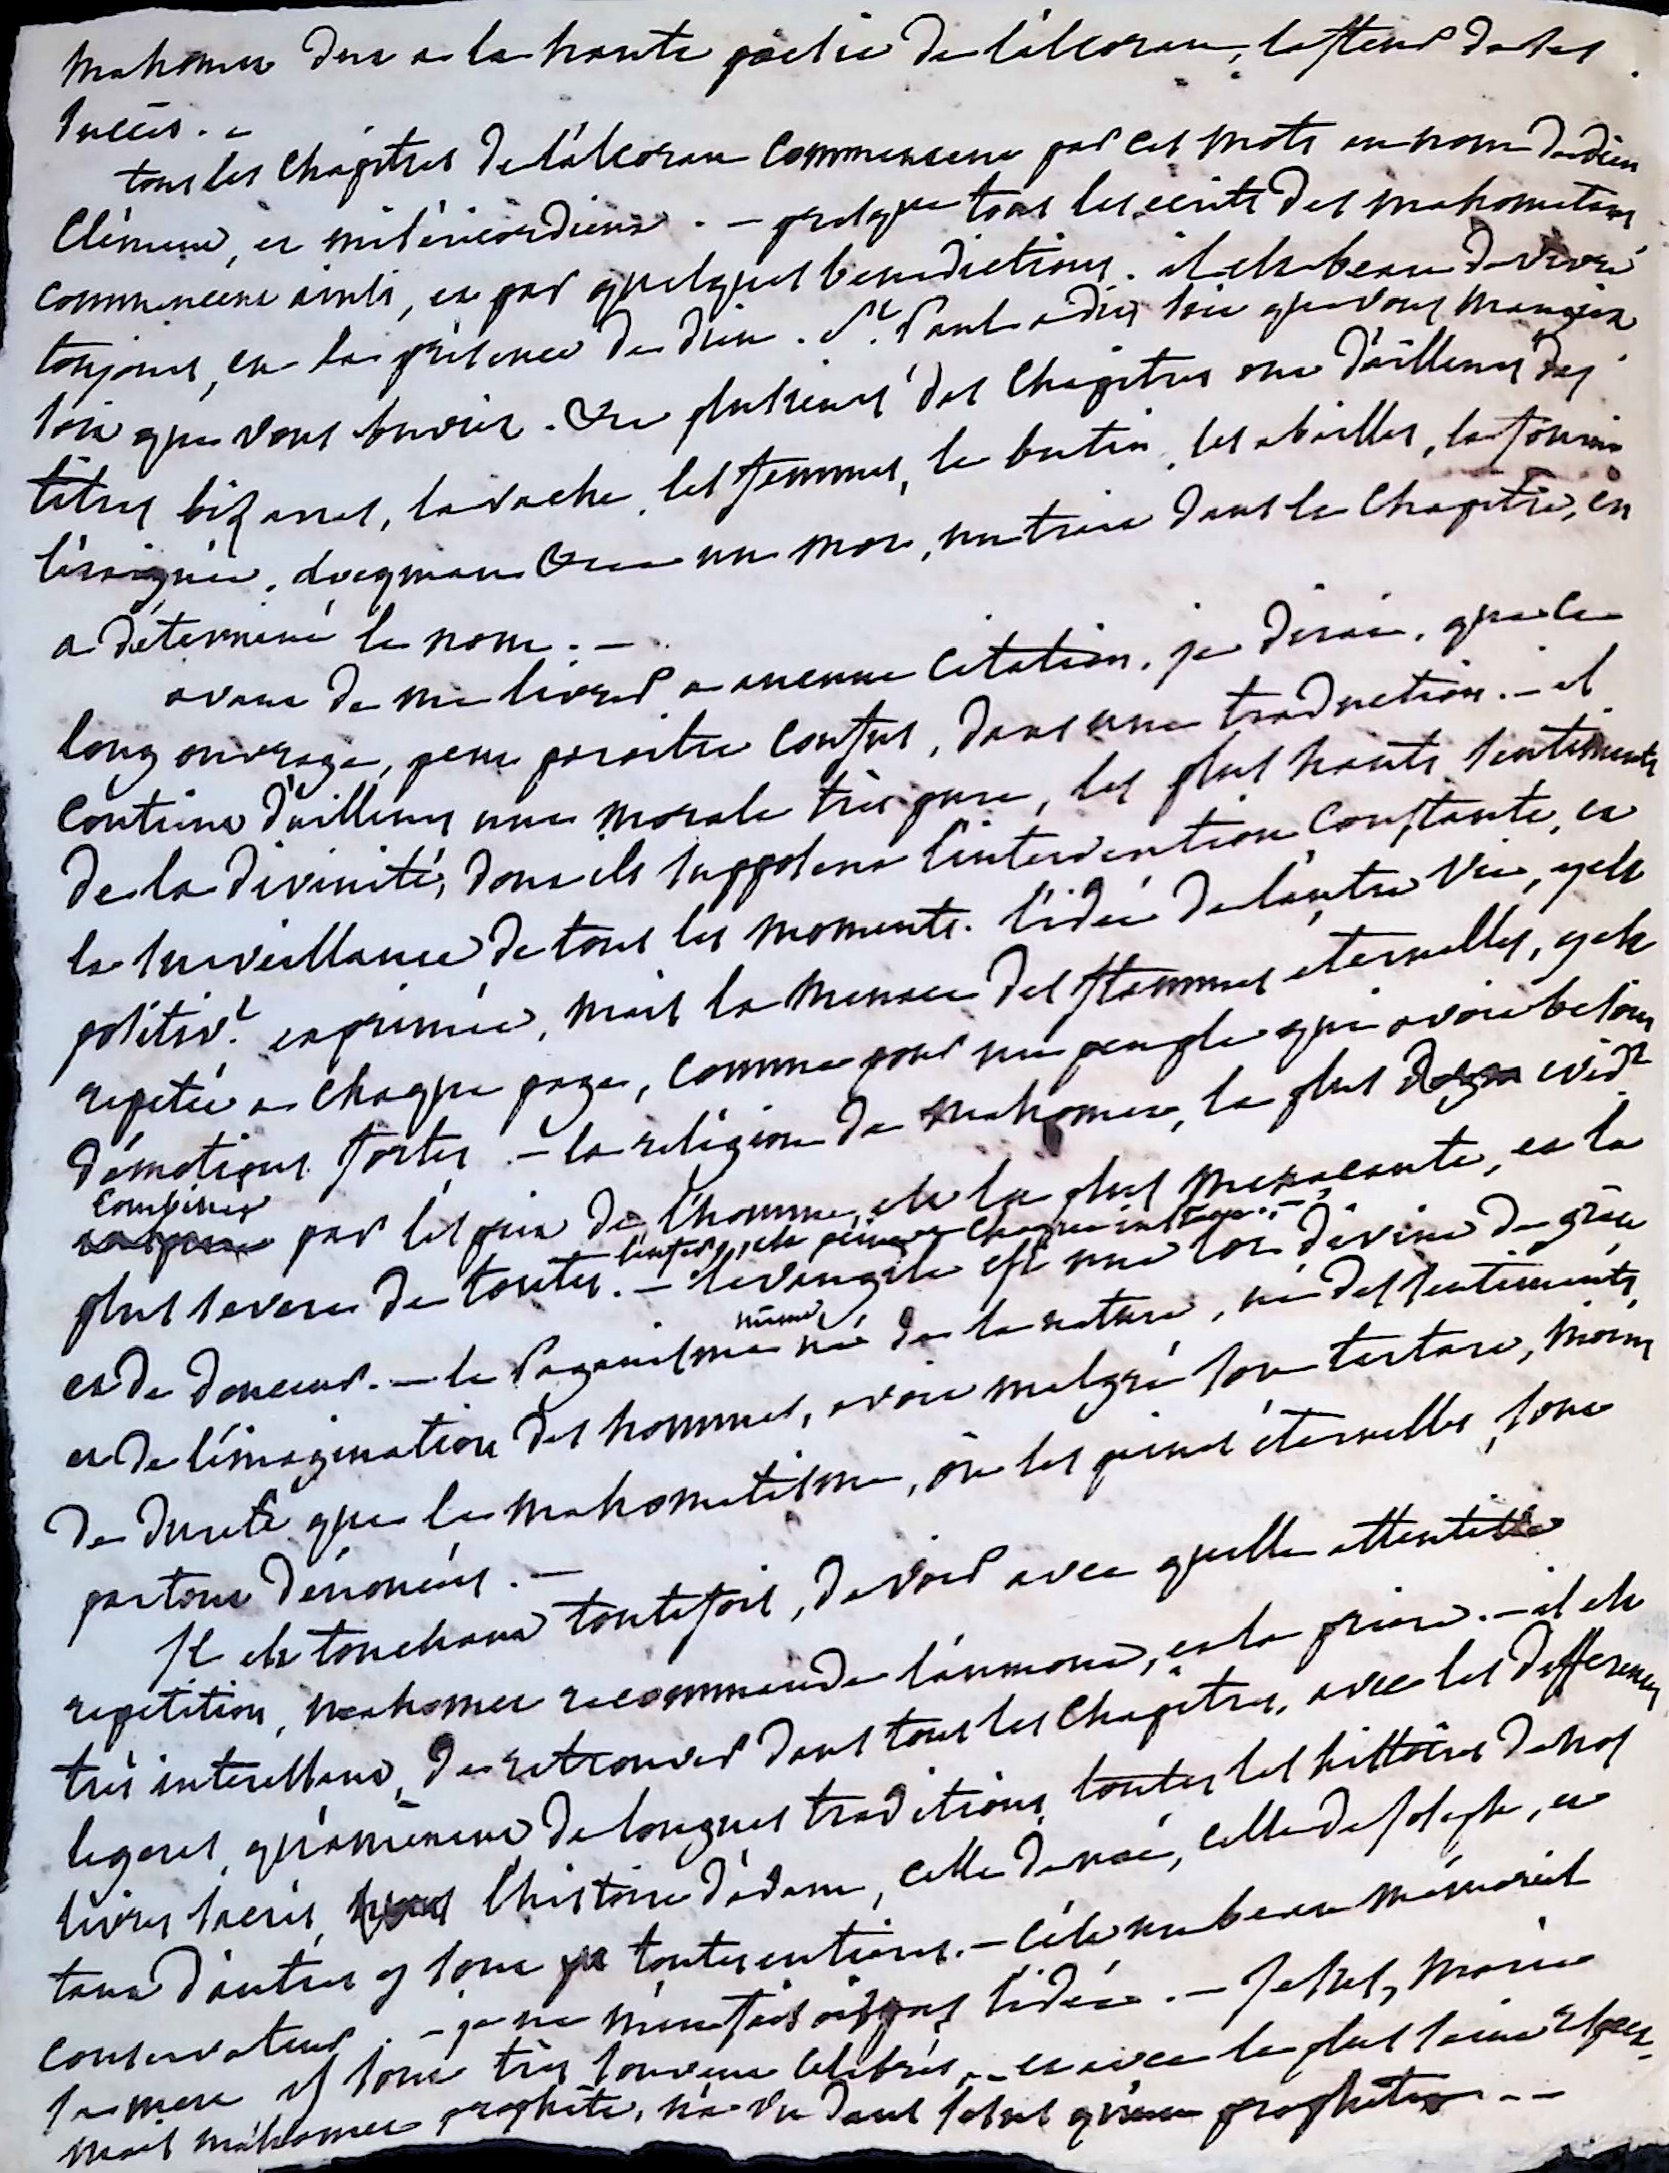 mahomet dut a la haute poësie de l'alcoran, la fleur de ses
succès. -
tous les chapitres de l'alcoran commencent par ces mots au nom de dieu
clément, et miséricordieux. - presque tous les ecrits des mahometans
commencent ainsi, et par quelques benedictions. il est beau de vivre
toujours, en la présence de dieu. St. Paul a dit, soit que vous mangiez
soit que vous buviez. plusieurs des chapitres ont d'ailleurs des
titres bizarres, la vache, les femmes, le butin, les abeilles, la fourmi
l'éraignée, un mot, un trait dans le chapitre, en
a déterminé le nom. -
avant de me livrer a aucune citation, je dirai, que le
long ouvrage, peut paroitre confus, dans une traduction. - il
contient d'ailleurs une morale très pure, les plus hauts sentiments
de la divinité, dont ils supposent l'intervention constante, et
la surveillance de tous les moments. l'idée de l'autre vie, y est
positivt. exprimée, mais la menace des flammes eternelles, y est
repetée a chaque page, comme pour un peuple qui avoit besoin
d'émotions fortes. - la religion de mahomet, la plus evidt
combinée
par l'esprit de l'homme, est la plus menacante, et la
l'enfer, est peint a chaque instant. -
plus severe de toutes. - l'evangile est une loi divine de grâce
et de douceur. - le Paganisme né de la nature, né des sentiments,
même
et de l'imagination des hommes, avoit malgré son tartare, moins
de dureté que le mahometisme, où les peines éternelles, sont
partout dénoncées. -
Il est touchant toutefois, de voir avec quelle attentive
repetition, mahomet recommande l'aumone, et la priere. - il est
très interessant, de retrouver dans tous les chapitres, avec les differences
legeres, qu'amènent de longues traditions, toutes les histoires de nos
livres sacrés, l'histoire d'adam, celle de noé, celle de Joseph, et
tant d'autres y sont toutes entieres. - c'est un beau mémorial
conservateur. - je ne m'en fais pas l'idée. - Jesus, marie
sa mere y sont très souvent celebrés, - et avec le plus saint respect.
mais mahomet prophète, n'a vu dans Jesus qu'un prophete - -